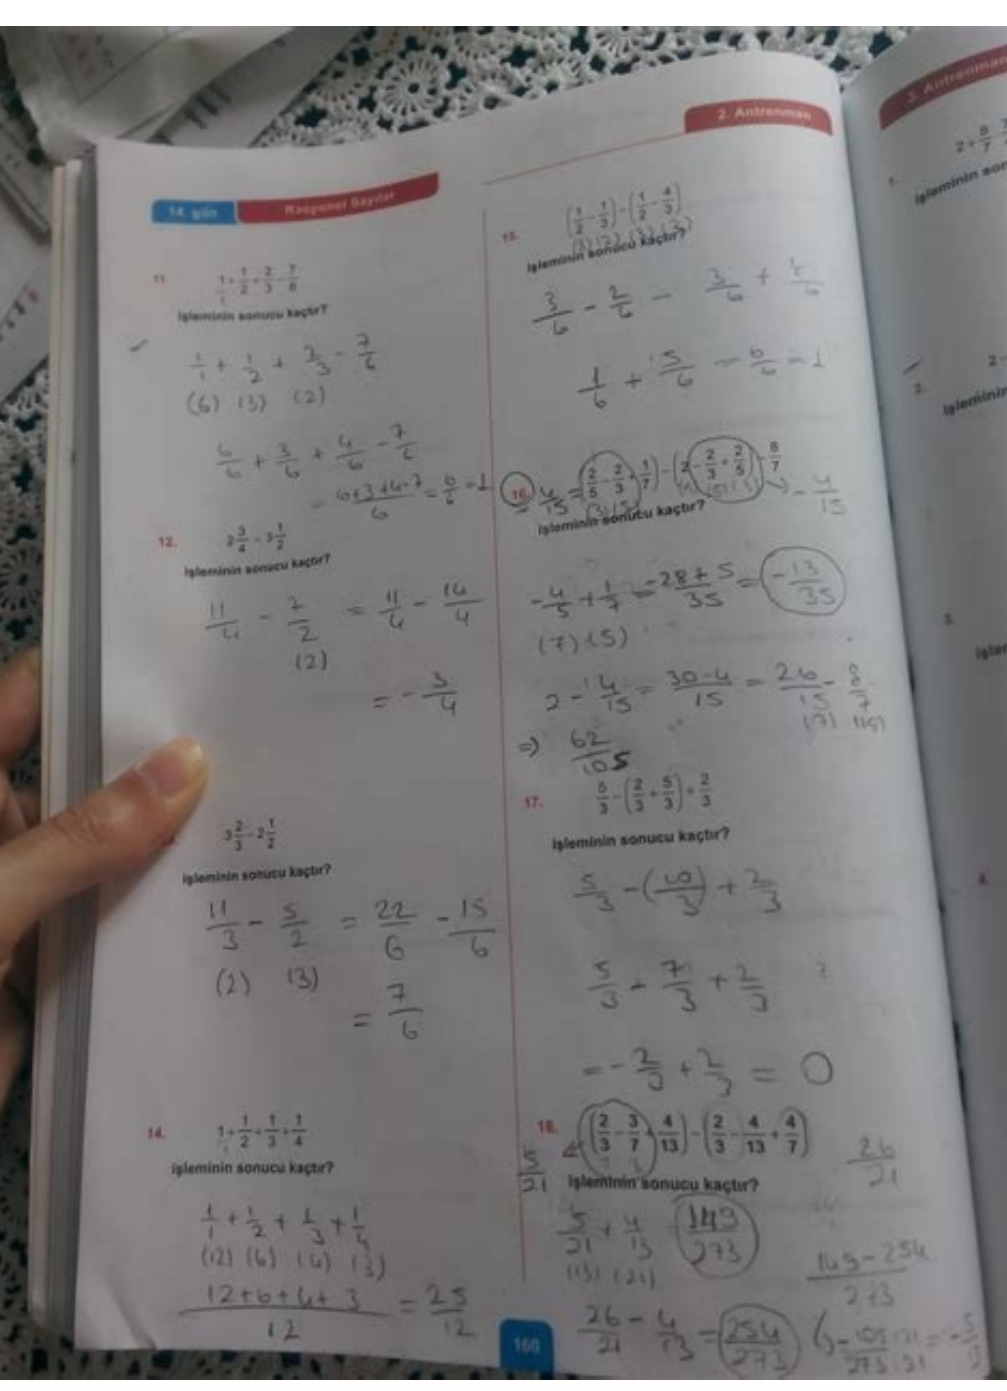 2. Antrenman
14. gün Rasyonel Sayılar
11. 1+1/2+2/3-7/6
işleminin sonucu kaçtır?
1/1 + 1/2 + 2/3 - 7/6
(6) (3) (2)
6/6 + 3/6 + 4/6 - 7/6
= (6+3+4-7)/6 = 6/6 = 1
12. 2 3/4 - 3 1/2
işleminin sonucu kaçtır?
11/4 - 7/2 = 11/4 - 14/4
(2)
= - 3/4
3 2/3 - 2 1/2
işleminin sonucu kaçtır?
11/3 - 5/2 = 22/6 - 15/6
(2) (3)
= 7/6
14. 1+1/2+1/3+1/4
işleminin sonucu kaçtır?
1/1 + 1/2 + 1/3 + 1/4
(12) (6) (4) (3)
(12+6+4+3)/12 = 25/12
15. (1/2 - 1/3) - (1/2 - 4/3)
işleminin sonucu kaçtır?
3/6 - 2/6 - 3/6 +
1/6 + 5/6 = 6/6 = 1
16. (2/5 - 2/3 + 1/7) - (2 - 2/3 + 2/5) - 8/7
- 4/15
işleminin sonucu kaçtır?
-4/5 + 1/7 = (-28+5)/35 = -13/35
(7) (5)
2 - 4/15 = (30-4)/15 = 26/15 - 8/7
(7) (15)
=> 62/105
17. 5/3 - (2/3 + 5/3) + 2/3
işleminin sonucu kaçtır?
5/3 - (10/3) + 2/3
5/3 - 7/3 + 2/3
= - 2/3 + 2/3 = 0
18. (2/3 - 3/7 + 4/13) - (2/3 - 4/13 + 4/7)
5/21
26/21
işleminin sonucu kaçtır?
5/21 + 4/13 149/273
(13) (21)
(149-254)/273
26/21 - 4/13 = 254/273
-105:21/273:21 = -5/13
160
3. Antrenman
1. 2+8/7
işleminin
2. 2-
işleminin
3.
4.